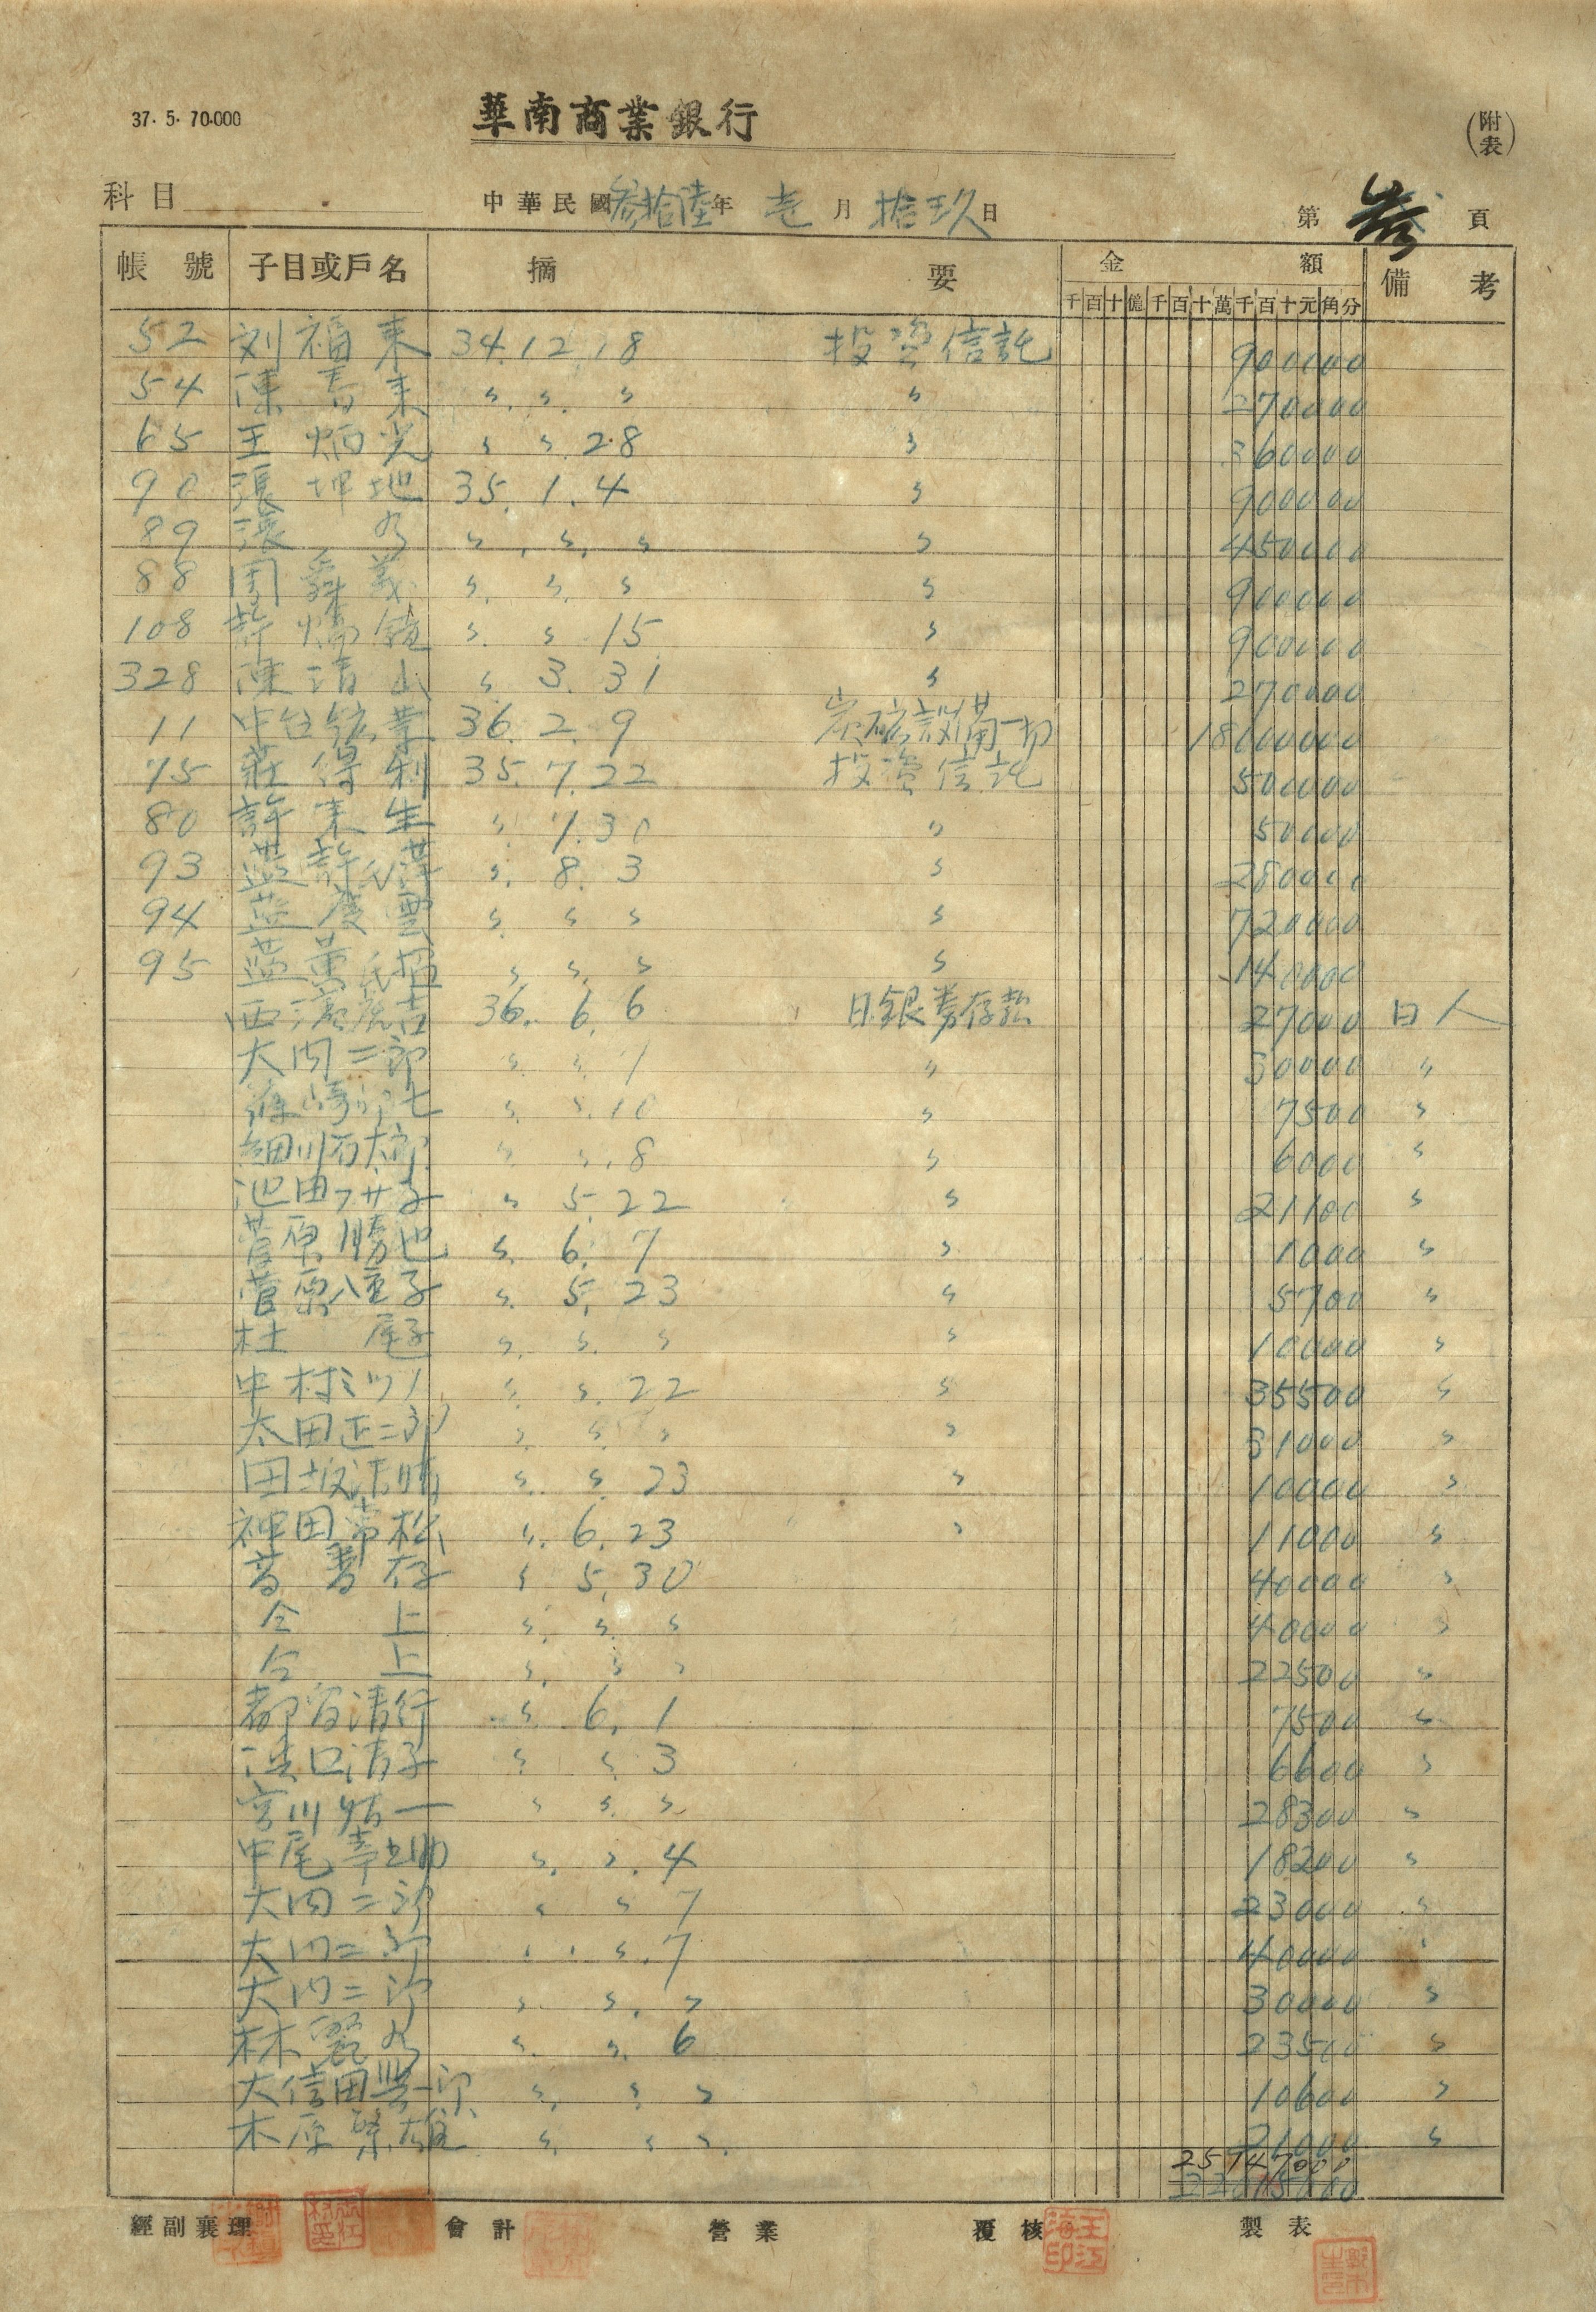 37. 5. 70.000
華南商業銀行
(附表)
科目
中華民國參拾陸年 壱月 拾玖日
第 叁 頁
帳號 子目或戶名 摘要 金額 備考
千百十億千百十萬千百十元角分
52 刘福来 34.12.18 投資信託 900000
54 陳春来 〃.〃.〃 〃 270000
65 王炳光 〃 〃.28 〃 360000
90 張坤地 35.1.4 〃 900000
89 〃.〃.〃 〃 450000
88 周舜義 〃.〃.〃 〃 900000
108 許炳 〃.〃.15 〃 900000
328 陳清山 〃.3.31 〃 270000
11 中台鉱業 36.2.9 炭砿設備一部 18000000
75 莊得利 35.7.22 投資信託 500000
80 許来生 〃.7.30 〃 50000
93 藍許氏 〃.8.3 〃 280000
94 藍慶雲 〃.〃.〃 〃 720000
95 藍黄氏 〃.〃.〃 〃 140000
西濱 36.6.6 日銀券存款 27000 日人
大内二郎 〃.〃.7 〃 30000 〃
〃.〃.10 〃 7500 〃
細川石太郎 〃.〃.8 〃 6000 〃
池田フサ子 〃.5.22 〃 21100 〃
菅原勝也 〃.6.7 〃 1000 〃
菅原八重子 〃.5.23 〃 5700 〃
杜 〃.〃.〃 〃 10000 〃
中村ミツノ 〃.〃.22 〃 35500 〃
太田正二郎 〃.〃.〃 〃 31000 〃
田坂清晴 〃.〃.23 〃 10000 〃
神田常松 〃.6.23 〃 11000 〃
〃.5.30 40000 〃
仝上 〃.〃.〃 40000 〃
仝上 〃.〃.〃 22500 〃
都宮清行 〃.6.1 7500 〃
口清子 〃.〃.3 6600 〃
宮川 一 〃.〃.〃 28300 〃
中尾幸之助 〃.〃.4 18200 〃
大内二郎 〃.〃.7 23000 〃
大内二郎 〃.〃.7 40000 〃
大内二郎 〃.〃.〃 30000 〃
林麗 〃.〃.6 23500 〃
大信田 〃.〃.〃 10600 〃
木原繁雄 〃.〃.〃 21000 〃
25147000
經副襄理 會計 營業 覆核 製表
王江海印